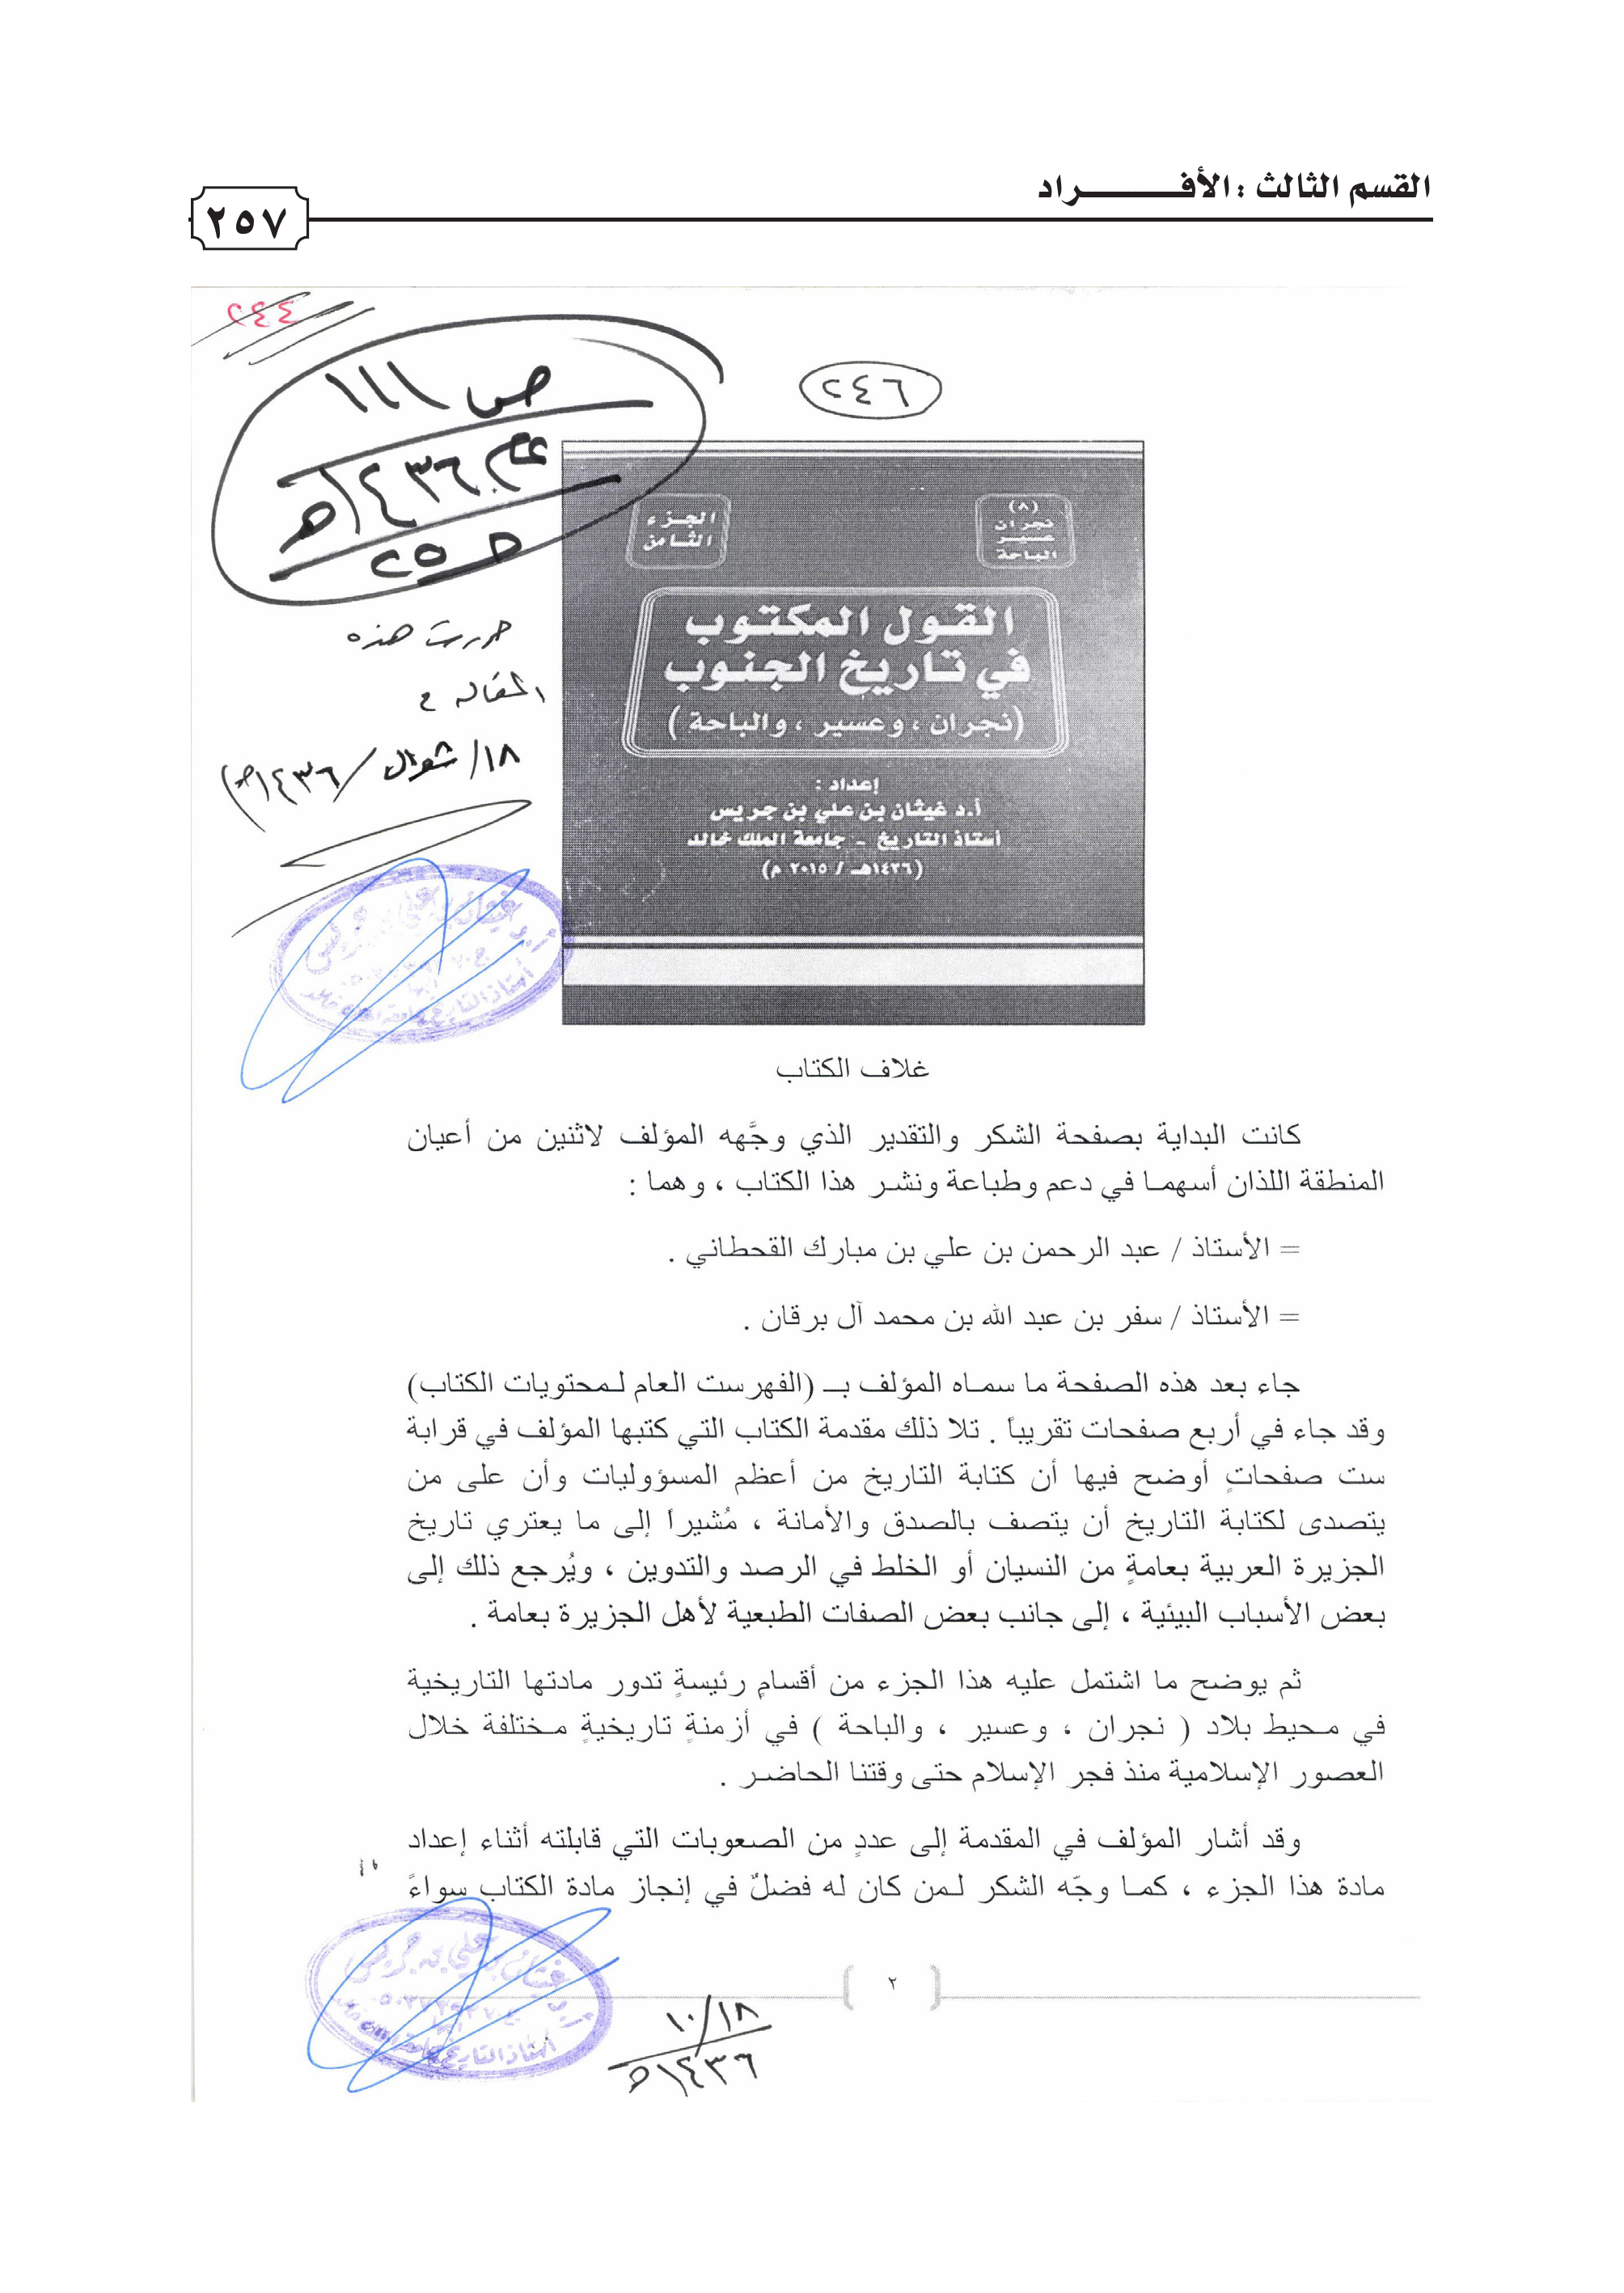 القسم الثالث : الأفـــــــراد
٢٥٧
٢٤٤
٢٤٦
ص ١١١
عام ١٤٣٦هـ
حـ ٢٥
حررت هذه
المقاله في
١٨/ شوال /١٤٣٦هـ)
(٨)
نجران
عسير
الباحة
الجزء
الثامن
القول المكتوب
في تاريخ الجنوب
(نجران ، وعسير ، والباحة )
إعداد :
أ.د غيثان بن علي بن جريس
أستاذ التاريخ - جامعة الملك خالد
(١٤٣٦هـ / ٢٠١٥ م)
غلاف الكتاب
كانت البداية بصفحة الشكر والتقدير الذي وجَّهه المؤلف لاثنين من أعيان
المنطقة اللذان أسهمـا في دعم وطباعة ونشـر هذا الكتاب ، وهما :
= الأستاذ / عبد الرحمن بن علي بن مبارك القحطاني .
= الأستاذ / سفر بن عبد الله بن محمد آل برقان .
جاء بعد هذه الصفحة ما سمـاه المؤلف بـ (الفهرست العام لـمحتويات الكتاب)
وقد جاء في أربع صفحات تقريباً . تلا ذلك مقدمة الكتاب التي كتبها المؤلف في قرابة
ست صفحاتٍ أوضح فيها أن كتابة التاريخ من أعظم المسؤوليات وأن على من
يتصدى لكتابة التاريخ أن يتصف بالصدق والأمانة ، مُشيراً إلى ما يعتري تاريخ
الجزيرة العربية بعامةٍ من النسيان أو الخلط في الرصد والتدوين ، ويُرجع ذلك إلى
بعض الأسباب البيئية ، إلى جانب بعض الصفات الطبعية لأهل الجزيرة بعامة .
ثم يوضح ما اشتمل عليه هذا الجزء من أقسامٍ رئيسةٍ تدور مادتها التاريخية
في مـحيط بلاد ( نجران ، وعسير ، والباحة ) في أزمنةٍ تاريخيةٍ مـختلفة خلال
العصور الإسلامية منذ فجر الإسلام حتى وقتنا الحاضـر .
وقد أشار المؤلف في المقدمة إلى عددٍ من الصعوبات التي قابلته أثناء إعداد
مادة هذا الجزء ، كمـا وجّه الشكر لـمن كان له فضلٌ في إنجاز مادة الكتاب سواءً
٢
أ.د غيثان بن علي بن جريس
أستاذ التاريخ
١٠/١٨
١٤٣٦هـ